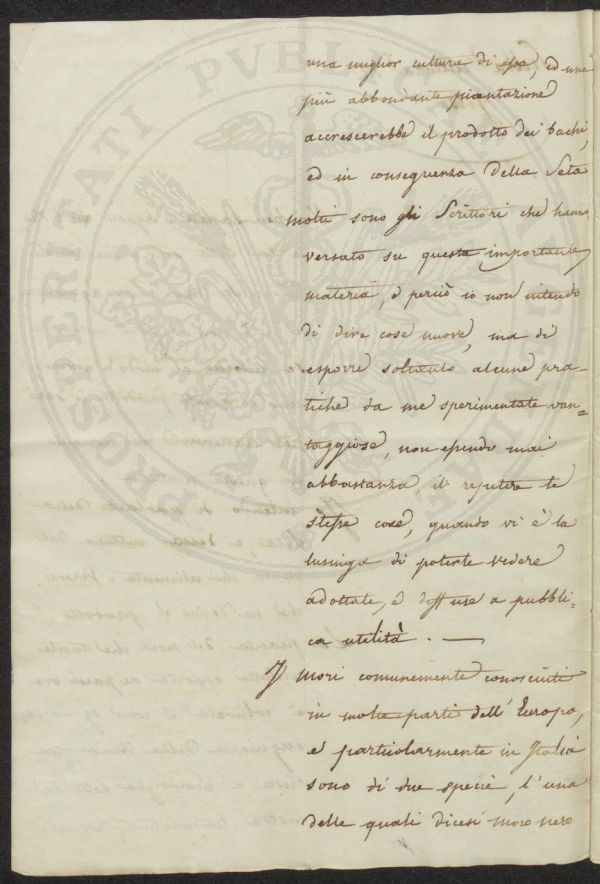 una miglior cultura di essa, ed una
più abbondante piantazione
accrescerebbe il prodotto dei bachi,
ed in conseguenza della Seta
molti sono gli Scrittori che hanno
versato su questa importante
materia, e perciò io non intendo
di dire cose nuove, ma di
esporre soltanto alcune pra-
tiche da me sperimentate van=
taggiose, non essendo mai
abbastanza il repetere le
stesse cose, quando vi è la
lusinga di poterle vedere
adottate, e diffuse a pubbli-
ca utilità. —
I mori comunemente conosciuti
in molte parti dell' Europa,
e particolarmente in Italia
sono di due specie, l'una
delle quali dicesi moro nero
PROSPERITATI PUBLICAE